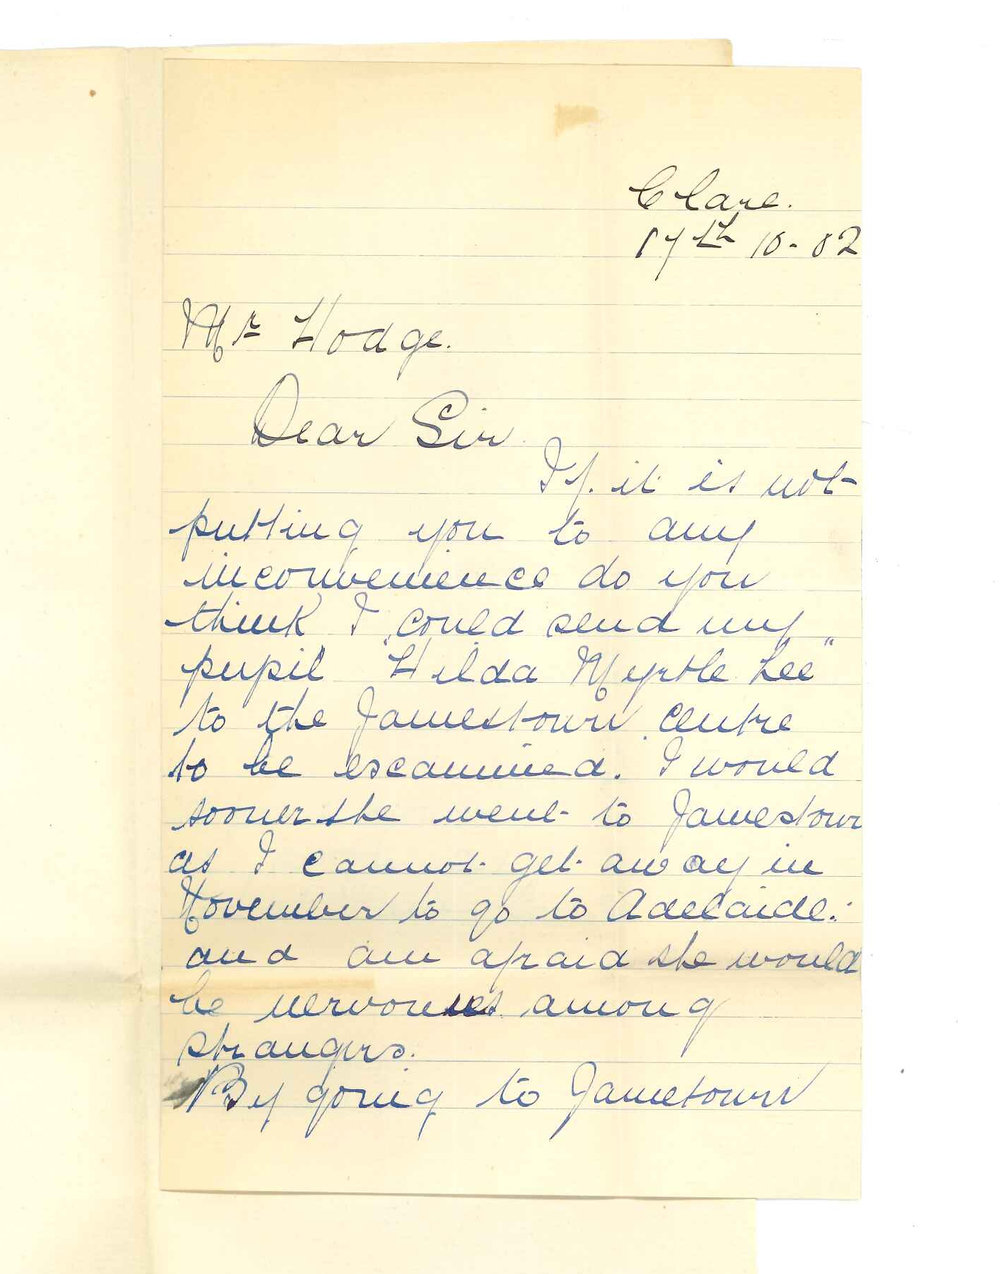 Clare.
17th 10-02
Mr Hodge.
Dear Sir
If it is not
putting you to any
inconvenience do you
think I could send my
pupil "Hilda Myrtle Lee"
to the Jamestown centre
to be examined. I would
sooner she went to Jamestown
as I cannot get away in
November to go to Adelaide:
and am afraid she would
be nervous among
strangers.
By going to Jametown